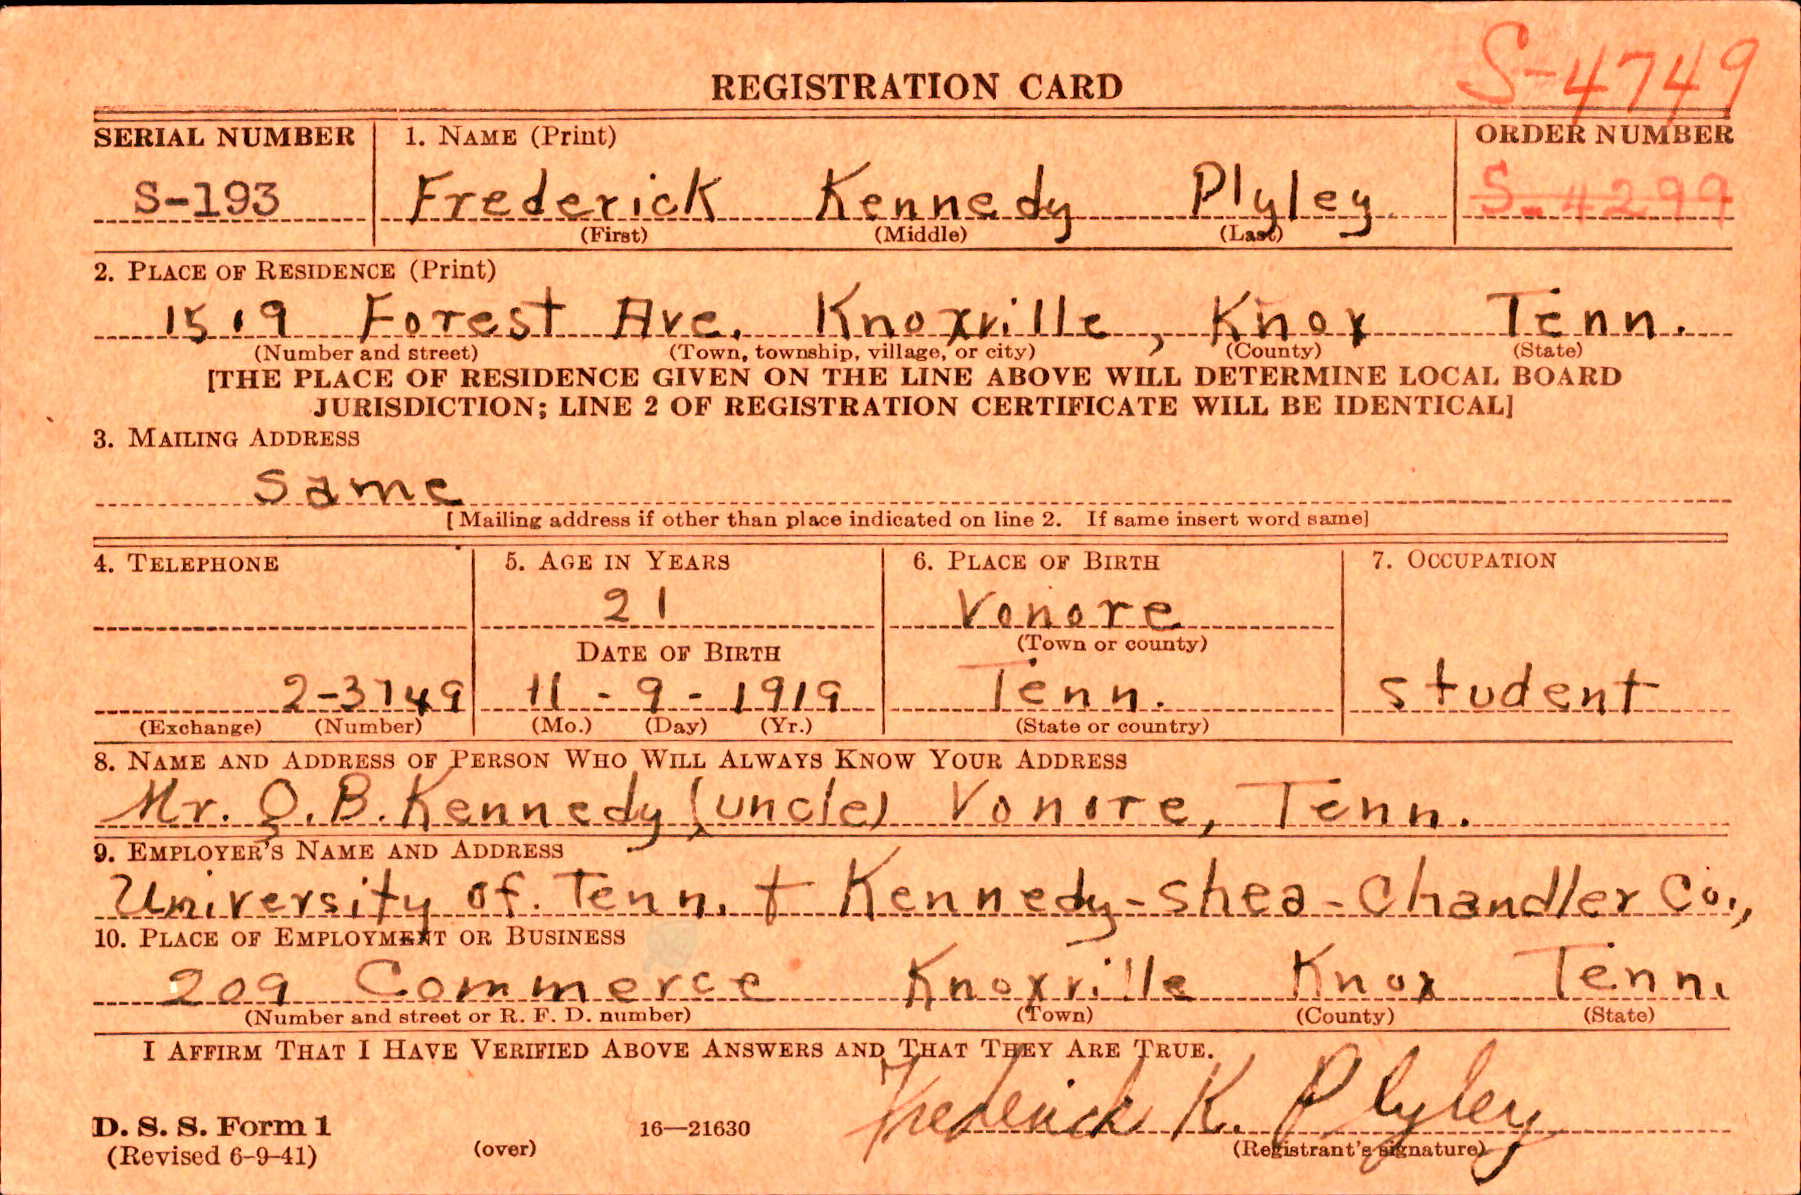 S-4749
REGISTRATION CARD
SERIAL NUMBER 1. NAME (Print) ORDER NUMBER
S-193 Frederick Kennedy Plyley S-4299
(First) (Middle) (Last)
2. PLACE OF RESIDENCE (Print)
1519 Forest Ave. Knoxville, Knox Tenn.
(Number and street) (Town, township, village, or city) (County) (State)
[THE PLACE OF RESIDENCE GIVEN ON THE LINE ABOVE WILL DETERMINE LOCAL BOARD
JURISDICTION; LINE 2 OF REGISTRATION CERTIFICATE WILL BE IDENTICAL]
3. MAILING ADDRESS
same
[Mailing address if other than place indicated on line 2. If same insert word same]
4. TELEPHONE 5. AGE IN YEARS 6. PLACE OF BIRTH 7. OCCUPATION
21 Vonore
DATE OF BIRTH (Town or county)
2-3749 11-9-1919 Tenn. student
(Exchange) (Number) (Mo.) (Day) (Yr.) (State or country)
8. NAME AND ADDRESS OF PERSON WHO WILL ALWAYS KNOW YOUR ADDRESS
Mr. O.B. Kennedy (uncle) Vonore, Tenn.
9. EMPLOYER'S NAME AND ADDRESS
University of. Tenn. + Kennedy-Shea-Chandler Co.,
10. PLACE OF EMPLOYMENT OR BUSINESS
209 Commerce Knoxville Knox Tenn.
(Number and street or R. F. D. number) (Town) (County) (State)
I AFFIRM THAT I HAVE VERIFIED ABOVE ANSWERS AND THAT THEY ARE TRUE.
Frederick K. Plyley
D. S. S. Form 1 16—21630
(Revised 6-9-41) (over) (Registrant's signature)